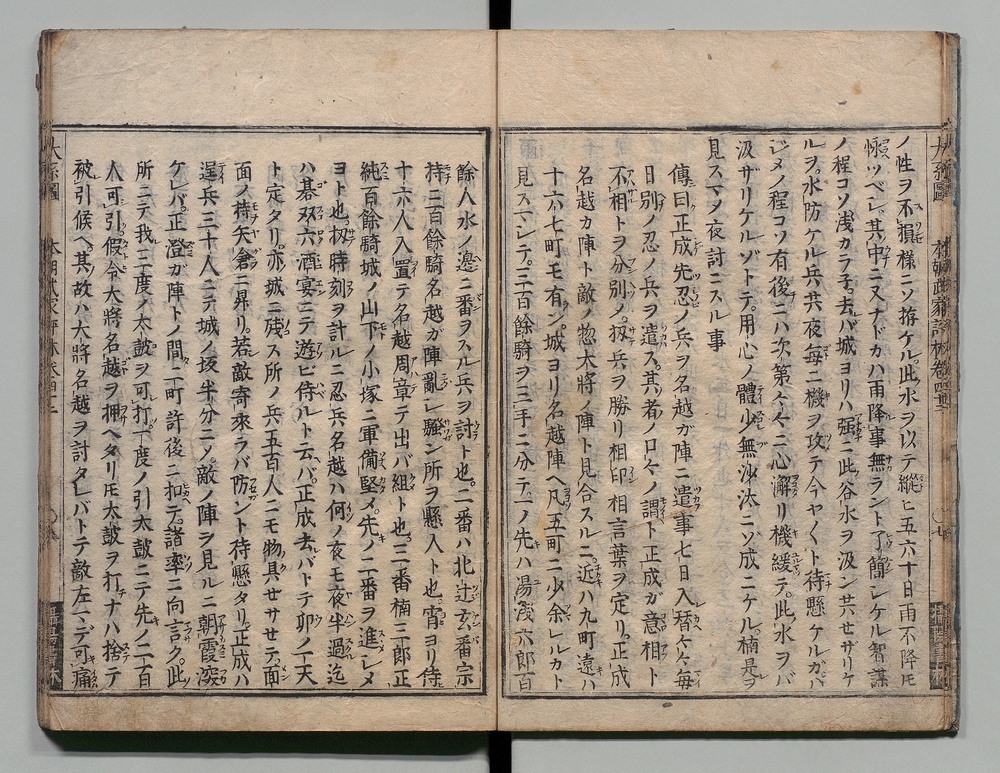 ノ性ヲ不損様ニソ拵ケル此水ヲ以テ縦ヒ五六十日雨不降トモ
怺ツベシ其中ニ又ナドカハ雨降事無ラント了簡シケル智謀
ノ程コソ浅カラ子去バ城ヨリハ強ニ此谷水ヲ汲ン共セザリケ
ルヲ水防ケル兵共夜毎ニ機ヲ攻テ今ヤ〱ト待懸ケルガハ
ジメノ程コソ有後ニハ次第々々ニ心懈リ機緩テ此水ヲバ
汲ザリケルゾトテ用心ノ體少シ無沙汰ニソ成ニケル楠是ヲ
見スマメ夜討ニスル事
傳曰正成先忍ノ兵ヲ名越ガ陣ニ遣事七日入替々々毎
日別ノ忍ノ兵ヲ遣ス其者ノ口々ノ調ト正成ガ意相ト
不相トヲ分別ノ扨兵ヲ勝リ相印相言葉ヲ定リ正成
名越カ陣ト敵ノ惣大将ノ陣ト見合スルニ近ハ九町遠ハ
十六七町モ有ン城ヨリ名越陣ヘ凡五町ニ少余レルカト
見スマシテ三百餘騎ヲ三手ニ分テ一ノ先ハ湯浅六郎百
餘人水ノ邊ニ番ヲスル兵ヲ討ト也二番ハ北辻玄番宗
持二百餘騎名越ガ陣亂レ騒ン所ヲ懸入ト也宵ヨリ侍
十六人入置テ名越周章テ出バ組ト也三番楠三郎正
純百餘騎城ノ山下ノ小塚ニ軍備堅メ先ノ二番ヲ進シメ
ヨト也扨時刻ヲ計ルニ忍兵名越ハ何ノ夜モ夜半過迄
ハ碁双六酒宴ニテ遊ビ侍ルト云バ正成去バトテ卯ノ一天
ト定タリ亦城ニ残ス所ノ兵五百人ニモ物具セサセテ面
面ノ持矢倉ニ昇リ若敵寄來ラバ防ント待懸タリ正成ハ
逞兵三十人ニテ城ノ坂半分ニメ敵ノ陣ヲ見ルニ朝霞深
ケレバ正澄ガ陣トノ間二町許後ニ扣テ諸率ニ向言ク此
所ニテ我三度ノ太皷ヲ可打一度ノ引太皷ニテ先ノ二百
人可引假令大將名越ヲ押ヘタリトモ太皷ヲ打ナハ捨テ
被引候ヘ其故ハ大將名越ヲ討タレバトテ敵左ニデ可痛